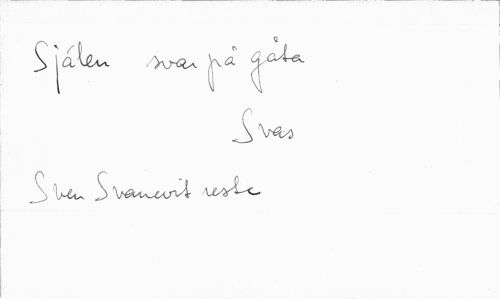 Själen svar på gåta
Svas
Sven Svanevit reste